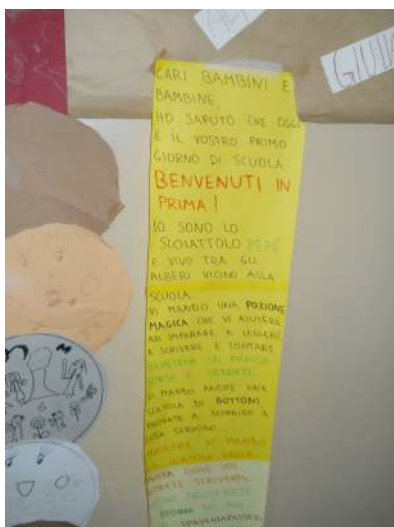 GIULIA
CARI BAMBINI E
BAMBINE,
HO SAPUTO CHE OGGI
È IL VOSTRO PRIMO
GIORNO DI SCUOLA.
BENVENUTI IN
PRIMA!
IO SONO LO
SCOIATTOLO PEPÉ
E VIVO TRA GLI
ALBERI VICINO ALLA
SCUOLA.
VI MANDO UNA POZIONE
MAGICA CHE VI AIUTERÀ
AD IMPARARE A LEGGERE
A SCRIVERE E CONTARE
VI MANDO ANCHE UNA
SCATOLA DI BOTTONI
PROVATE A SCOPRIRE A
COSA SERVONO
INOLTRE VI MANDO
LA SCATOLA DELLA
DOVE VOI
POTRETE SCRIVERE
STORIA
SPAVENTAPASSERI